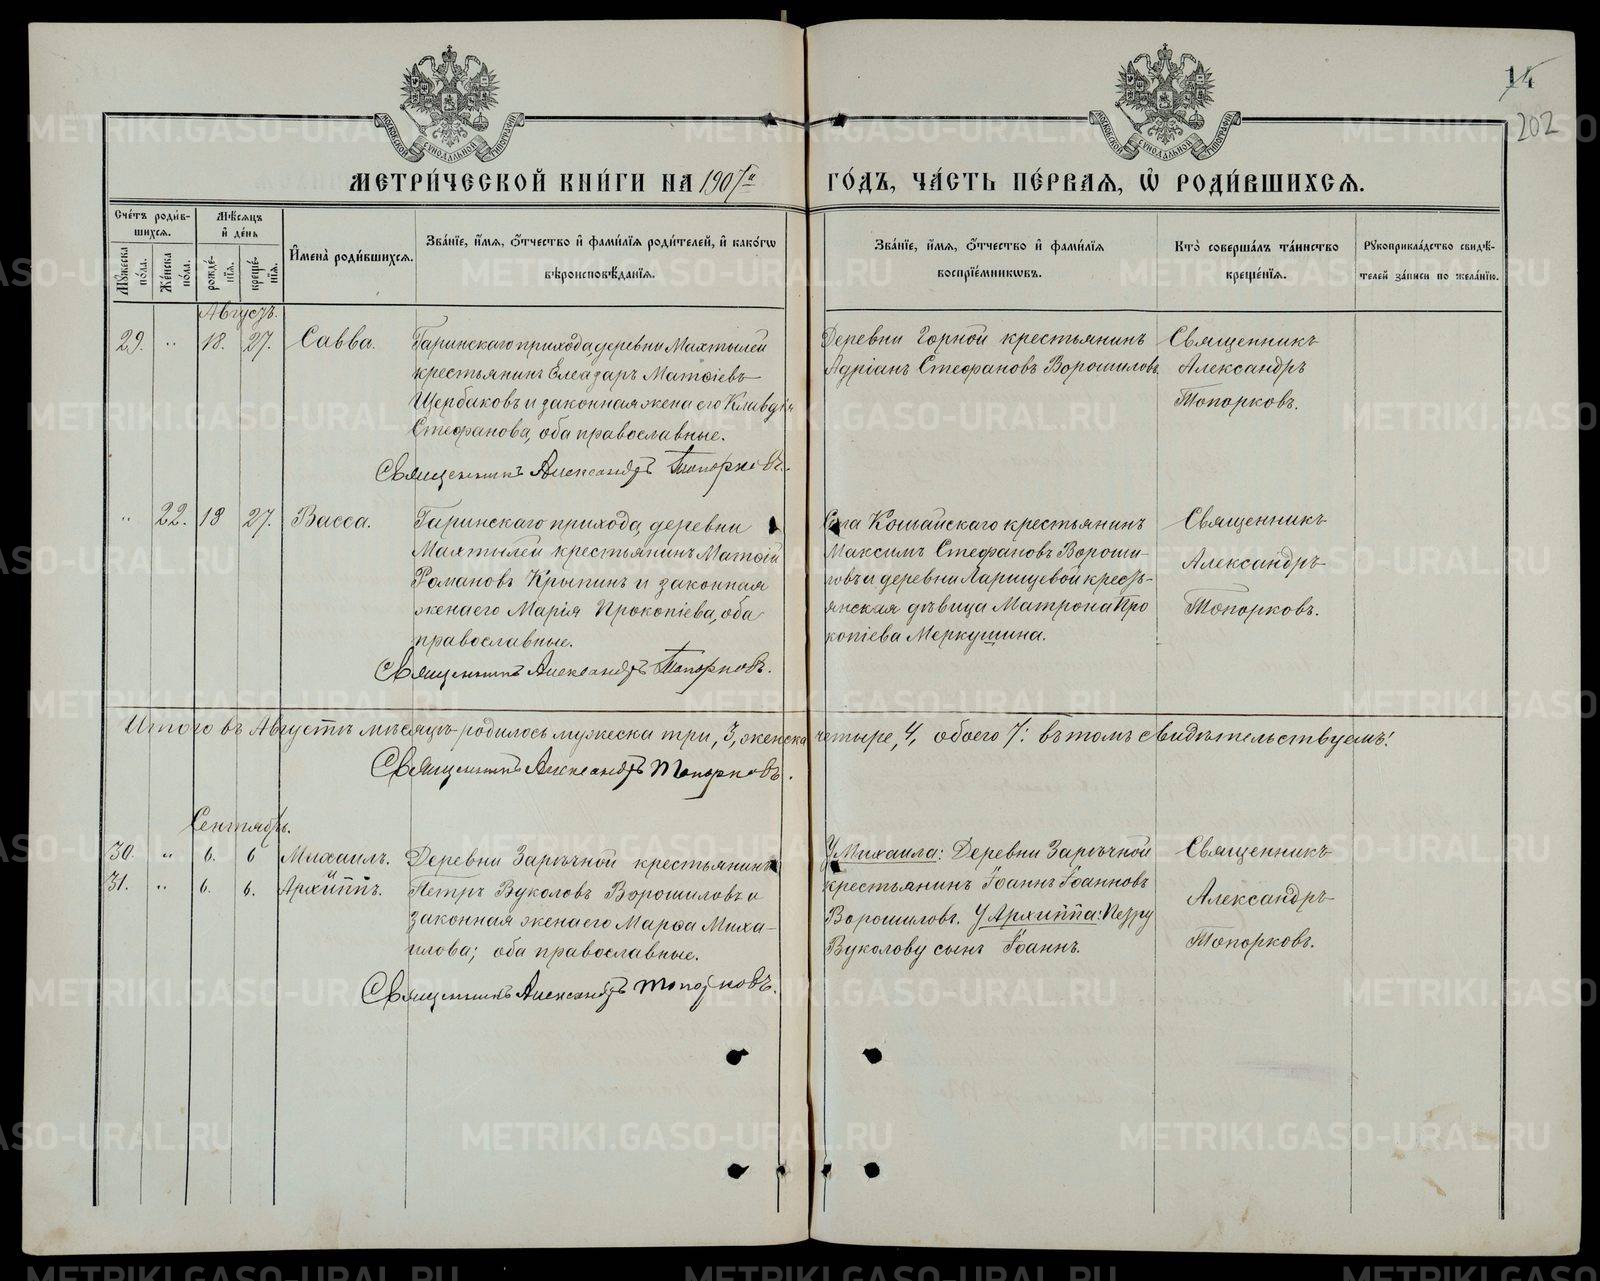 14
202
МОСКОВСКОЙ СѴНОДАЛЬНОЙ ТИПОГРАФІИ
МОСКОВСКОЙ СѴНОДАЛЬНОЙ ТИПОГРАФІИ
МЕТРИ́ЧЕСКОЙ КНИ́ГИ НА 1907й ГО́ДЪ, ЧА́СТЬ ПЕ́РВАѦ, Ѡ҆ РОДИ́ВШИХСѦ.
Сче́тъ роди́в-
шихсѧ.
Мꙋ́жеска по́ла.
Же́нска по́ла.
Мѣ́сѧцъ
и҆ де́нь
рожде́-
нїѧ.
креще́-
нїѧ.
И҆мена̀ роди́вшихсѧ.
Зва́нїе, и҆́мѧ, ѻ҆́тчество и҆ фами́лїѧ роди́телей, и҆ како́гѡ
вѣроисповѣ́данїѧ.
Зва́нїе, и҆́мѧ, ѻ҆́тчество и҆ фами́лїѧ
воспрїе́мникѡвъ.
Кто̀ соверша́лъ та́инство
креще́нїѧ.
Рꙋкоприкла́дство свидѣ́-
телей за́писи по жела́нїю.
Августъ.
29. " 18. 27. Савва. Гаринскаго прихода, деревни Махтылей
крестьянинъ Елеазаръ Матѳіевъ
Щербаковъ и законная жена его Клавдія
Стефанова, оба православные.
Священникъ Александръ Топорковъ.
Деревни Горной крестьянинъ
Адріанъ Стефановъ Ворошиловъ
Священникъ
Александръ
Топорковъ.
" 22. 18 27. Васса. Гаринскаго прихода, деревни
Махтылей крестьянинъ Матѳій
Романовъ Крыпинъ и законная
жена его Марія Прокопіева, оба
православные.
Священникъ Александръ Топорковъ.
Села Кошайскаго крестьянинъ
Максимъ Стефановъ Вороши-
ловъ и деревни Ларищевой кресть-
янская дѣвица Матрона Про
копіева Меркушина.
Священникъ
Александръ
Топорковъ.
Итого въ Августѣ мѣсяцѣ родилось мужеска три, 3, женска четыре, 4, обоего 7: въ томъ свидѣтельствуемъ:
Священникъ Александръ Топорковъ.
Сентябрь.
30. " 6. 6 Михаилъ. Деревни Зарѣчной крестьянинъ
31. " 6. 6. Архиппъ. Петръ Вуколовъ Ворошиловъ и
законная жена его Марѳа Миха-
илова; оба православные.
Священникъ Александръ Топорковъ.
У Михаила: Деревни Зарѣчной
крестьянинъ Іоаннъ Іоанновъ
Ворошиловъ. У Архиппа: Петру
Вуколову сынъ Іоаннъ.
Священникъ
Александръ
Топорковъ.
METRIKI.GASO-URAL.RU